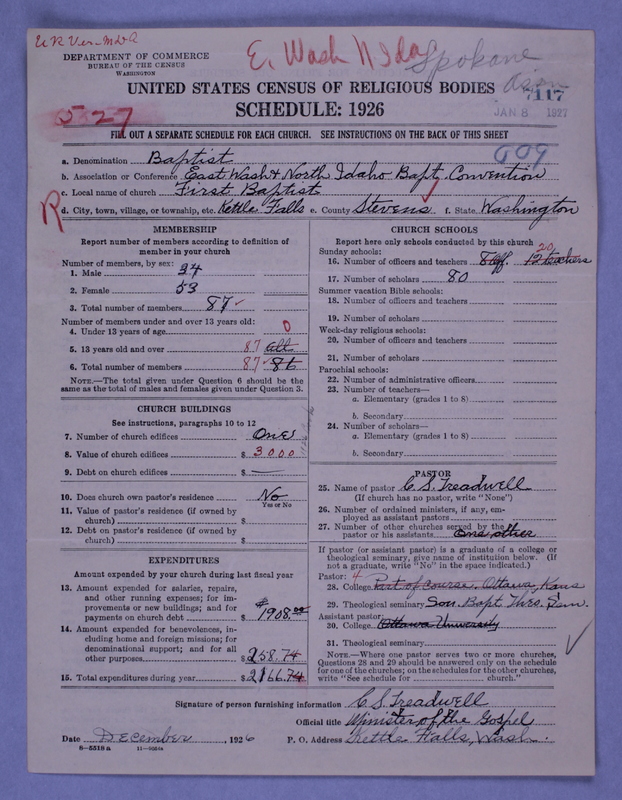 DEPARTMENT OF COMMERCE
BUREAU OF THE CENSUS
WASHINGTON
E. Wash N Ida Spokane
Assn
UNITED STATES CENSUS OF RELIGIOUS BODIES
7117
SCHEDULE: 1926
JAN 8 1927
5327
FILL OUT A SEPARATE SCHEDULE FOR EACH CHURCH. SEE INSTRUCTIONS ON THE BACK OF THIS SHEET
609
a. Denomination Baptist
b. Association or Conference East Wash & North Idaho Bapt. Convention
c. Local name of church First Baptist
R
d. City, town, village, or township, etc. Kettle Falls e. County Stevens f. State Washington
MEMBERSHIP
Report number of members according to definition of
member in your church
Number of members, by sex:
1. Male 34
2. Female 53
3. Total number of members 87
Number of members under and over 13 years old:
4. Under 13 years of age 0
5. 13 years old and over 87 all
6. Total number of members 87 86
NOTE.—The total given under Question 6 should be the
same as the total of males and females given under Question 3.
CHURCH BUILDINGS
See instructions, paragraphs 10 to 12
7. Number of church edifices One
8. Value of church edifices $ 3000
9. Debt on church edifices $ —
10. Does church own pastor's residence No
Yes or No
11. Value of pastor's residence (if owned by
church) $
12. Debt on pastor's residence (if owned by
church) $
EXPENDITURES
Amount expended by your church during last fiscal year
13. Amount expended for salaries, repairs,
and other running expenses; for im-
provements or new buildings; and for
payments on church debt $ 1908.00
14. Amount expended for benevolences, in-
cluding home and foreign missions; for
denominational support; and for all
other purposes $ 258.74
15. Total expenditures during year $ 2166.74
CHURCH SCHOOLS
Report here only schools conducted by this church
Sunday schools:
20
16. Number of officers and teachers 8 off. 12 teachers
17. Number of scholars 80
Summer vacation Bible schools:
18. Number of officers and teachers
19. Number of scholars
Week-day religious schools:
20. Number of officers and teachers
21. Number of scholars
Parochial schools:
22. Number of administrative officers
23. Number of teachers—
a. Elementary (grades 1 to 8)
b. Secondary
24. Number of scholars—
a. Elementary (grades 1 to 8)
b. Secondary
PASTOR
25. Name of pastor C. S. Treadwell
(If church has no pastor, write "None")
26. Number of ordained ministers, if any, em-
ployed as assistant pastors
27. Number of other churches served by the
pastor or his assistants One other
If pastor (or assistant pastor) is a graduate of a college or
theological seminary, give name of institution below. (If
not a graduate, write "No" in the space indicated.)
Pastor: 4
28. College Part of Course, Ottawa, Kans
29. Theological seminary Sou. Bapt. Theo. Sem.
Assistant pastor:
30. College Ottawa University
31. Theological seminary
NOTE.—Where one pastor serves two or more churches,
Questions 28 and 29 should be answered only on the schedule
for one of the churches; on the schedules for the other churches,
write "See schedule for church."
Signature of person furnishing information C S Treadwell
Official title Minister of the Gospel
Date December, 1926 P. O. Address Kettle Falls, Wash.
8—5318 a